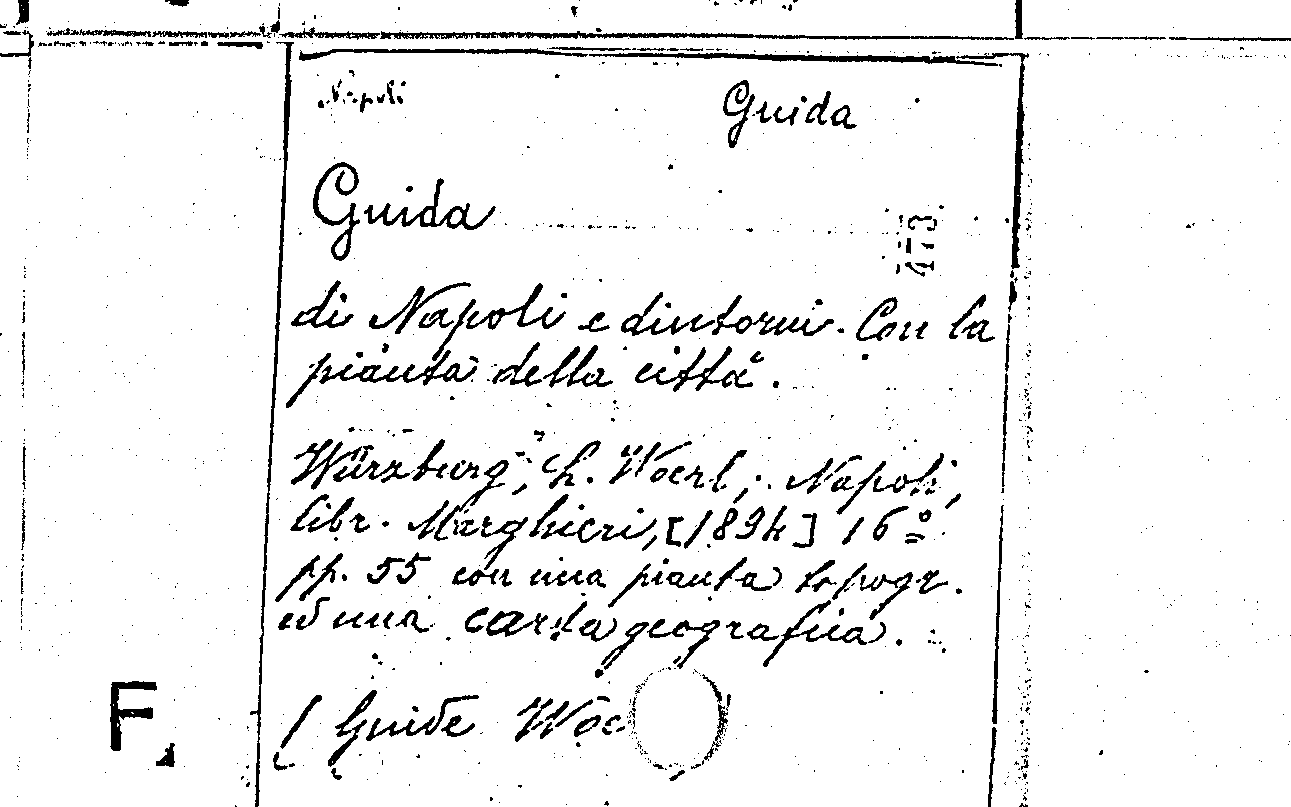 Napoli Guida
Guida
473
di Napoli e dintorni. Con la
pianta della città.
Würzburg, L. Woerl; Napoli,
libr. Marghieri, [1894] 16º
pp. 55 con una pianta topogr.
ed una carta geografica.
( Guide Woe
F